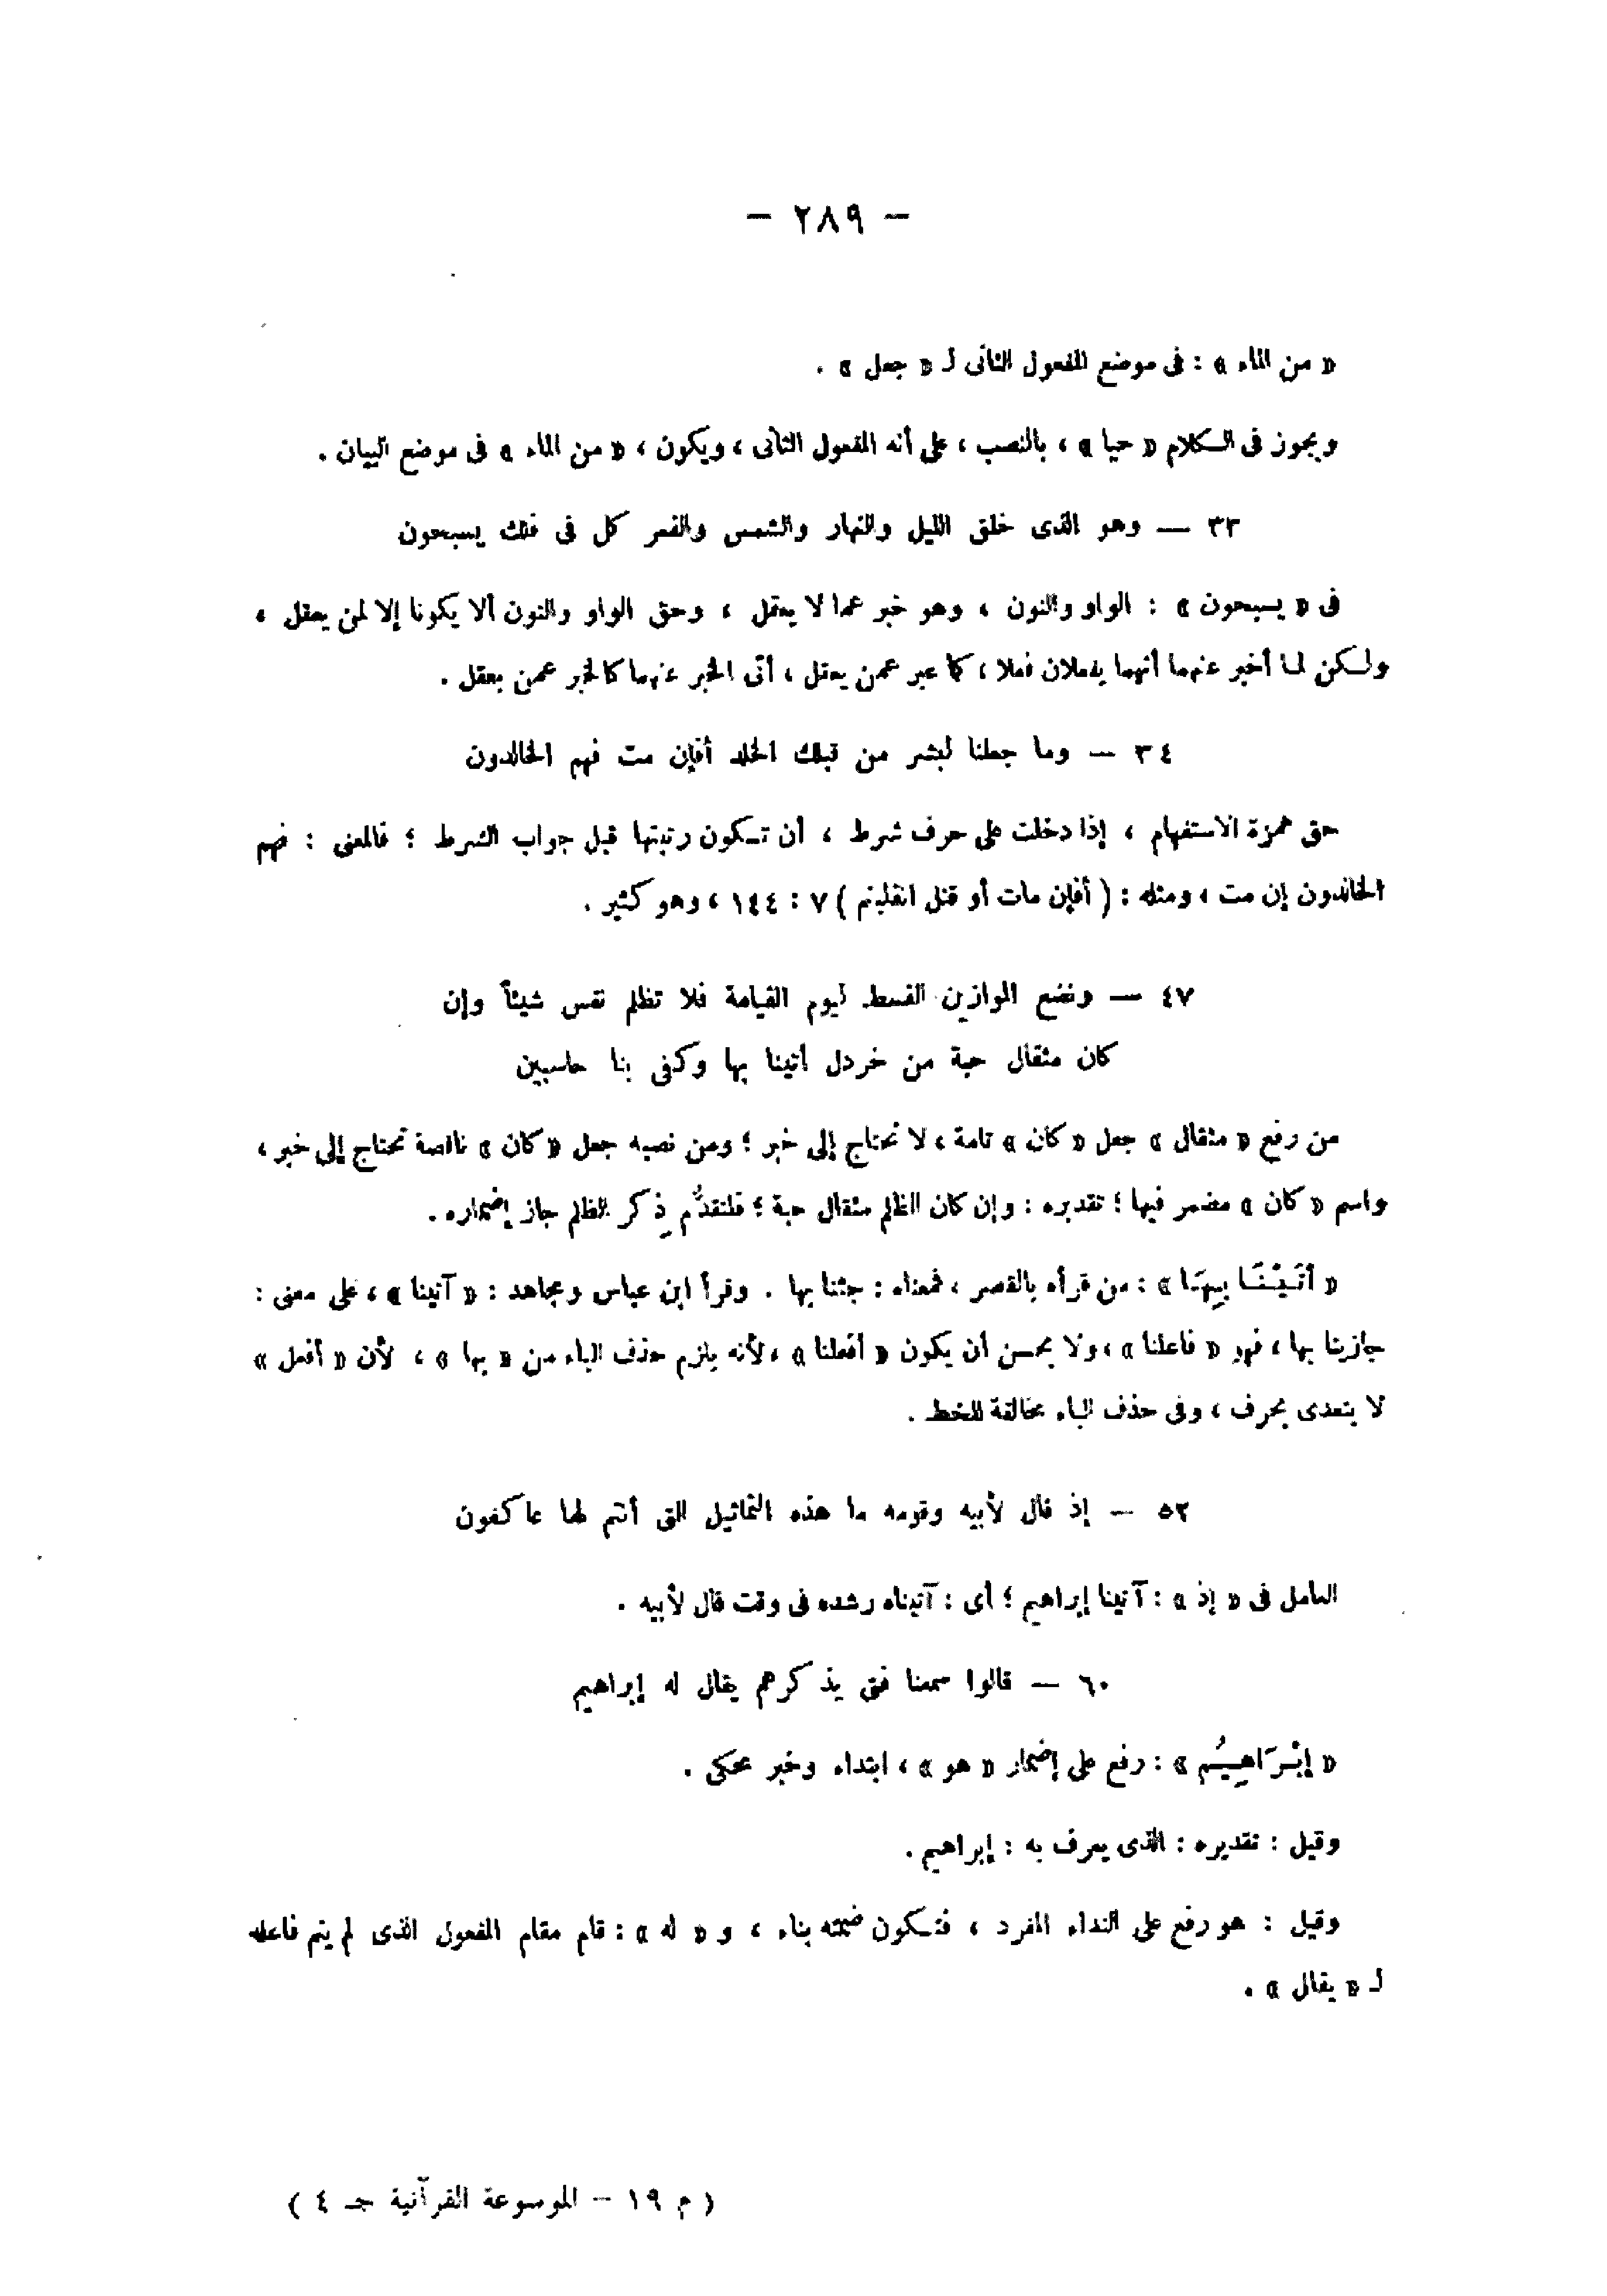 — ٢٨٩ —
« من الماء » : فى موضع المفعول الثانى لـ « جعل » .
ويجوز فى الكلام « حيا » ، بالنصب ، على أنه المفعول الثانى ، ويكون ، « من الماء » فى موضع البيان .
٣٣ — وهو الذى خلق الليل والنهار والشمس والقمر كل فى فلك يسبحون
فى « يسبحون » : الواو والنون ، وهو خبر عما لا يعقل ، وحق الواو والنون ألا يكونا إلا لمن يعقل ،
ولكن لما أخبر عنهما أنهما يفعلان فعلا ، كما عبر عمن يعقل ، أتى الخبر عنهما كالخبر عمن يعقل .
٣٤ — وما جعلنا لبشر من قبلك الخلد أفإن مت فهم الخالدون
حق همزة الاستفهام ، إذا دخلت على حرف شرط ، أن تكون رتبتها قبل جواب الشرط ؛ فالمعنى : فهم
الخالدون إن مت ، ومثله : ( أفإن مات أو قتل انقلبتم ) ٧ : ١٤٤ ، وهو كثير .
٤٧ — ونضع الموازين القسط ليوم القيامة فلا تظلم نفس شيئاً وإن
كان مثقال حبة من خردل أتينا بها وكفى بنا حاسبين
من رفع « مثقال » جعل « كان » تامة ، لا تحتاج إلى خبر ؛ ومن نصبه جعل « كان » ناقصة تحتاج إلى خبر ،
واسم « كان » مضمر فيها ؛ تقديره : وإن كان الظلم مثقال حبة ؛ فلتقدُّم ذِكر الظلم جاز إضماره .
« أتَيْنَا بِهَا » : من قرأه بالقصر ، فمعناه : جئنا بها . وقرأ ابن عباس ومجاهد : « آتينا » ، على معنى :
جازينا بها ، فهو « فاعلنا » ، ولا يحسن أن يكون « أفعلنا » ، لأنه يلزم حذف الباء من « بها » ، لأن « أفعل »
لا يتعدى بحرف ، وفى حذف الباء مخالفة للخط .
٥٢ — إذ قال لأبيه وقومه ما هذه التماثيل التى أنتم لها عاكفون
العامل فى « إذ » : آتينا إبراهيم ؛ أى : آتيناه رشده فى وقت قال لأبيه .
٦٠ — قالوا سمعنا فتى يذكرهم يقال له إبراهيم
« إبْرَاهِيُم » : رفع على إضمار « هو » ، ابتداء وخبر محكى .
وقيل : تقديره : الذى يعرف به : إبراهيم .
وقيل : هو رفع على النداء المفرد ، فتكون ضمته بناء ، و « له » : قام مقام المفعول الذى لم يتم فاعله
لـ « يقال » .
( م ١٩ — الموسوعة القرآنية جـ ٤ )